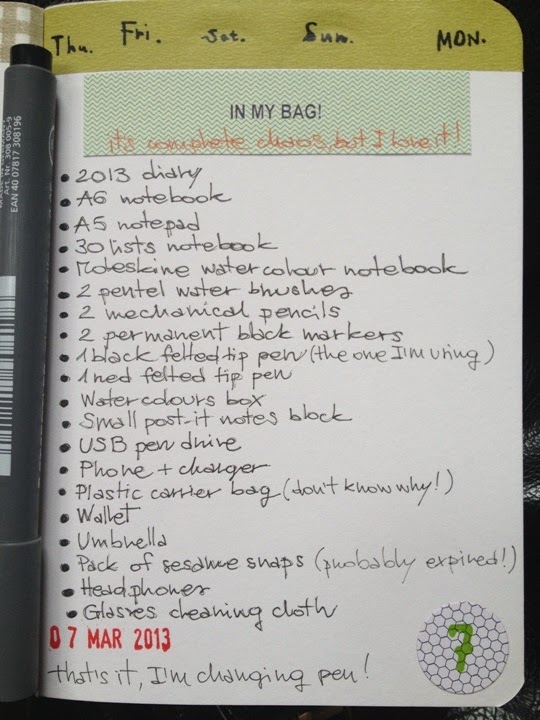 Thu. Fri. Sat. Sun. MON.
Art. Nr. 308 005-9
EAN 40 07817 308196
IN MY BAG!
it's complete chaos, but I love it!
• 2013 diary
• A6 notebook
• A5 notepad
• 30 lists notebook
• Moleskine water colour notebook
• 2 pentel water brushes
• 2 mechanical pencils
• 2 permanent black markers
• 1 black felted tip pen (the one I'm using)
• 1 red felted tip pen
• Water colours box
• Small post-it notes block
• USB pen drive
• Phone + charger
• Plastic carrier bag (don't know why!)
• Wallet
• Umbrella
• Pack of sesame snaps (probably expired!)
• Headphones
• Glasses cleaning cloth
07 MAR 2013
7
that's it, I'm changing pen!